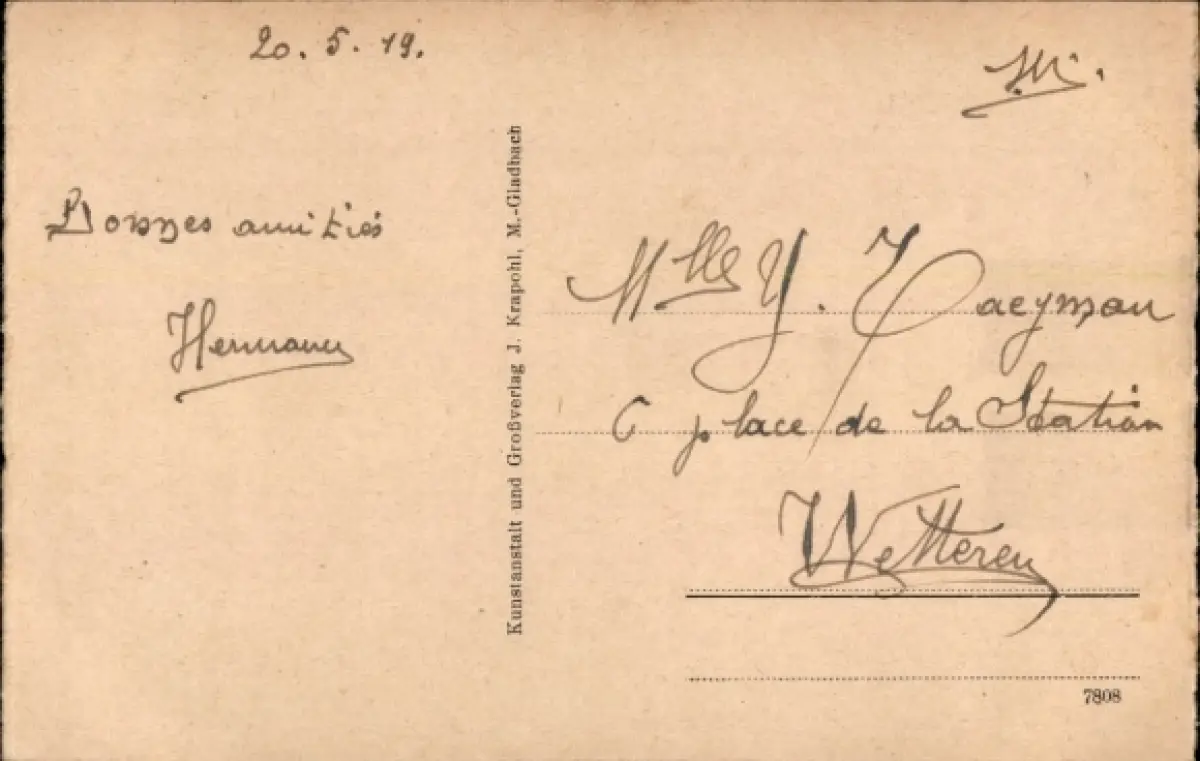 20. 5. 19.
S.M.
Bonnes amitiés
Hermann
Mlle Y. Taeyman
6 place de la Station
Wetteren
Kunstanstalt und Großverlag J. Krapohl, M.-Gladbach
7808